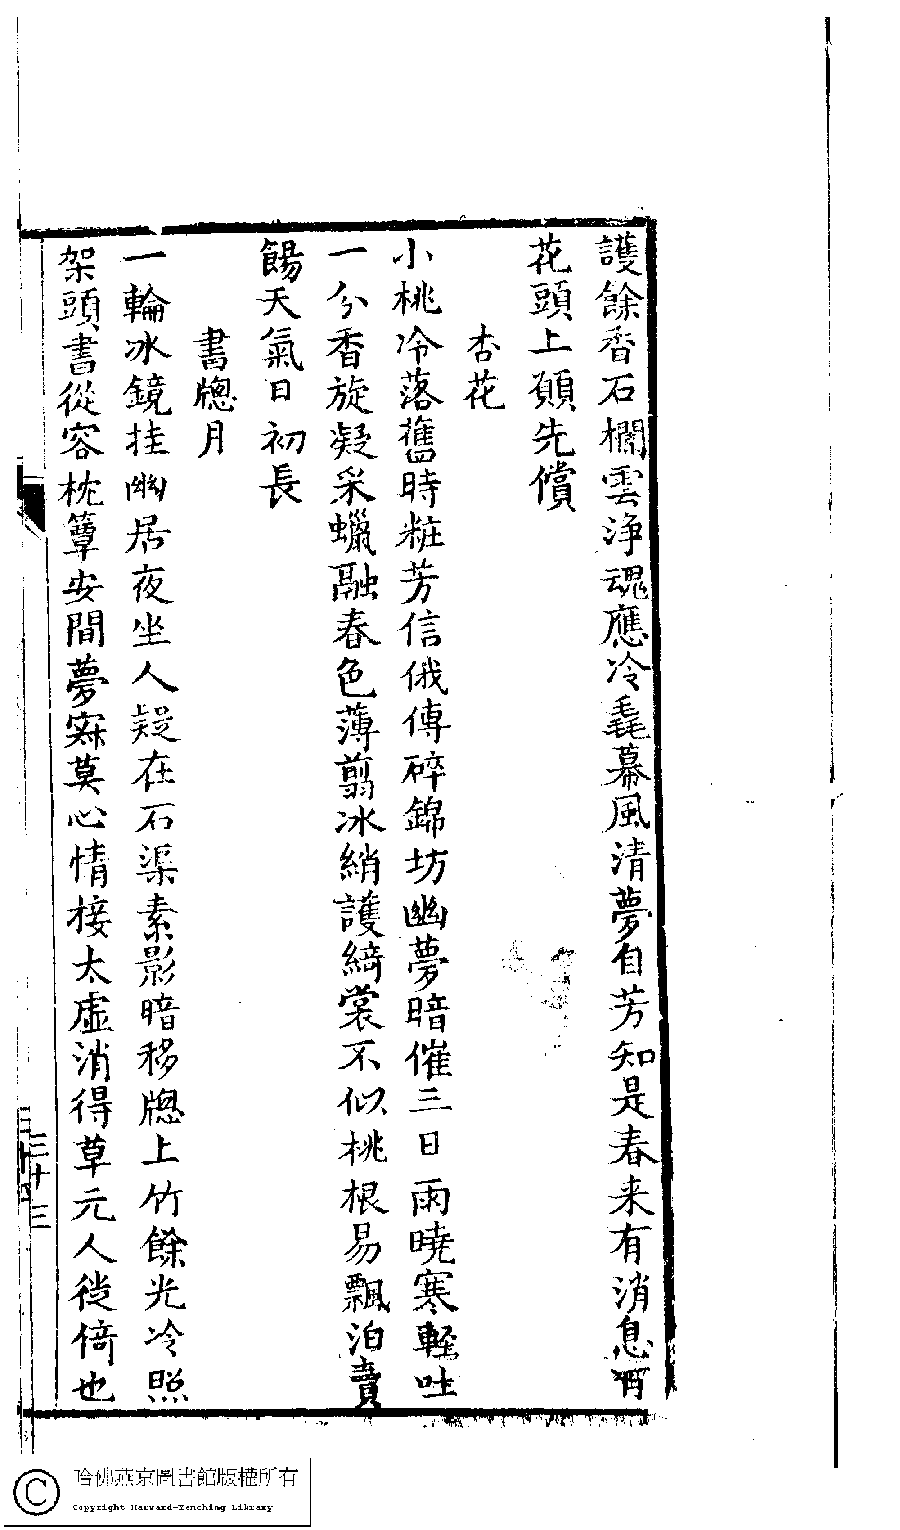 護餘香石欄雲浄魂應冷毳幕風清夢自芳知是春来有消息百
花頭上願先償
杏花
小桃冷落舊時粧芳信俄傳碎錦坊幽夢暗催三日雨曉寒輕吐
一分香旋凝采蠟融春色薄翦冰綃護綺裳不似桃根易飄泊賣
餳天氣日初長
書牕月
一輪冰鏡挂幽居夜坐人疑在石渠素影暗移牕上竹餘光冷照
架頭書從容枕簟安間夢寂莫心情接太虚消得草元人徙倚也
三十三
哈佛燕京圖書館版權所有
Copyright Harvard-Yenching Library